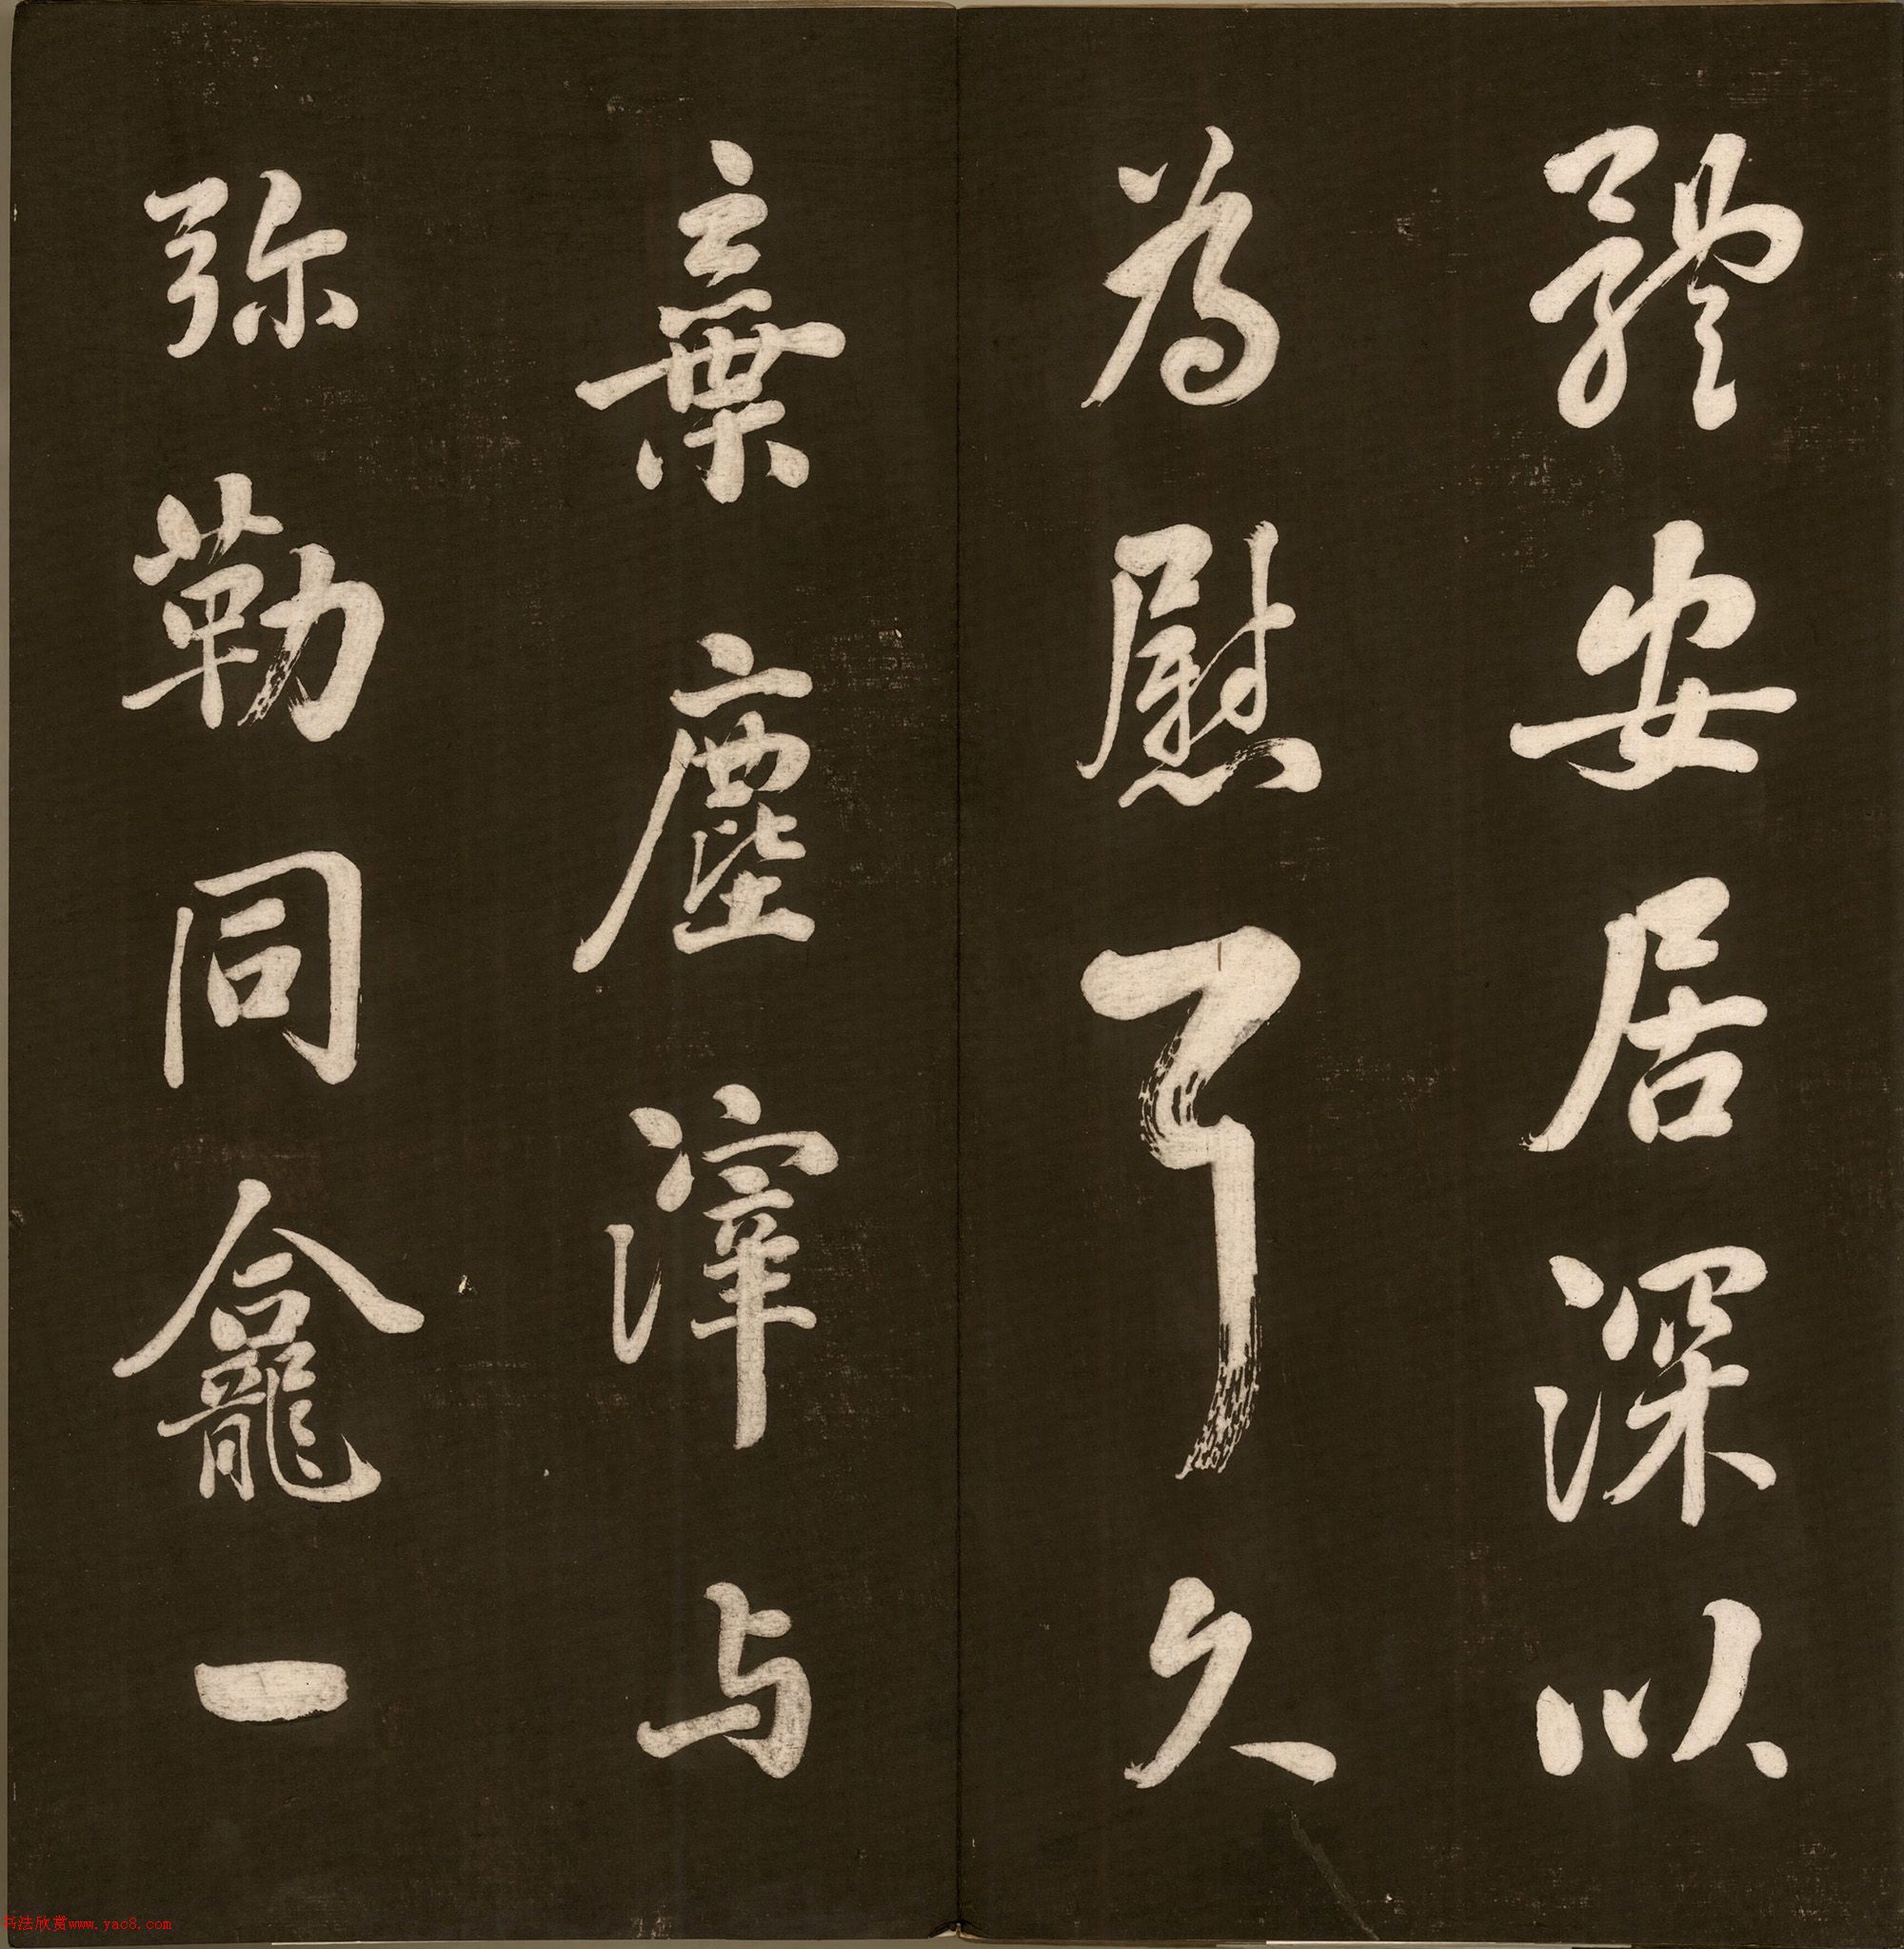 體安居深以
為慰耳久
棄塵滓与
弥勒同龕一
书法欣赏www.yac8.com